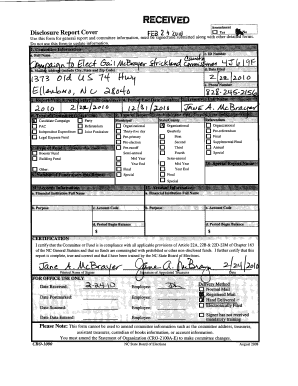 RECEIVED
Disclosure Report Cover
FEB 24 2010
Amendment
Use this form for general report and committee information, must be
Do not use this form to update information.
1. Committee Information
a. Full Name
c. ID Number
Campaign to Elect Gail McBrayer Strickland County Commissioner
b. Mailing Address
d. Date Filed
1373 Old U.S. 74 Hwy
2/28/2010
Ellenboro, NC 28040
e. Phone Number
828-245-2156
2010
12/31/2010
Jane A. McBrayer
Candidate Campaign
Party
PAC
Referendum
Independent Expenditure
Joint Fundraiser
Legal Expense Fund
Organizational
Thirty-five day
Pre-primary
Pre-election
Pre-runoff
Semi-annual
Mid Year
Year End
Final
Special
Organizational
Quarterly
First
Second
Third
Fourth
Semi-annual
Mid Year
Year End
Final
Special
Organizational
Pre-referendum
Final
Supplemental
Annual
Booster Fund
Building Fund
Other
a. Financial Institution Full Name
a. Financial Institution Full Name
b. Purpose
c. Account Code
b. Purpose
c. Account Code
d. Period Begin Balance
d. Period Begin Balance
$
$
CERTIFICATION
I certify that the Committee or Fund is in compliance with all applicable provisions of Article 22A, 22B & 22D-22M of Chapter 163
of the NC General Statutes and that no funds are commingled with prohibited or other non-disclosed funds. I further certify that this
report is complete, true and correct and that I have been trained by the NC State Board of Elections.
Jane A McBrayer
Jane A. McBrayer
2/24/2010
Printed Name of Signer
Signature of Appointed Treasurer
Date
FOR OFFICE USE ONLY
Delivery Method
Date Received:
2-24-10
Employee:
Normal Mail
Registered Mail
Date Postmarked:
Employee:
Hand Delivered
Electronically Filed
Date Scanned:
Employee:
Signer has not received
mandatory training
Date Data Entered:
Employee:
Please Note: This form cannot be used to amend committee information such as the committee address, treasurer,
assistant treasurer, custodian of books information, or account information.
You must amend the Statement of Organization (CRO-2100A-E) to make committee changes.
CRO-1000
NC State Board of Elections
August 2008